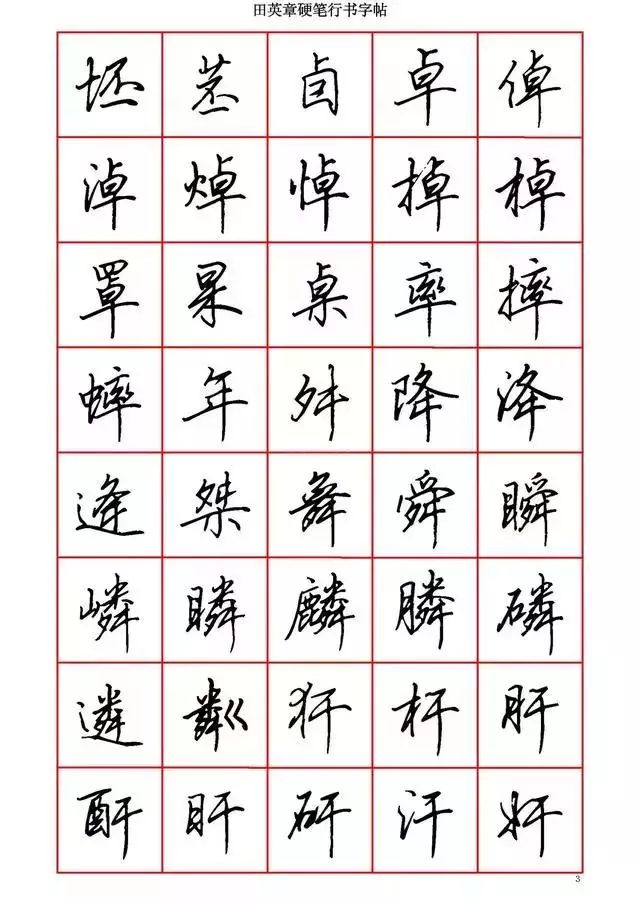 田英章硬笔行书字帖
坯 苤 卣 卓 倬
淖 焯 悼 掉 棹
罩 杲 桌 率 摔
蟀 年 舛 降 洚
逄 桀 舞 舜 瞬
嶙 瞵 麟 膦 磷
遴 粼 犴 杆 肝
酐 矸 汗 奸
3